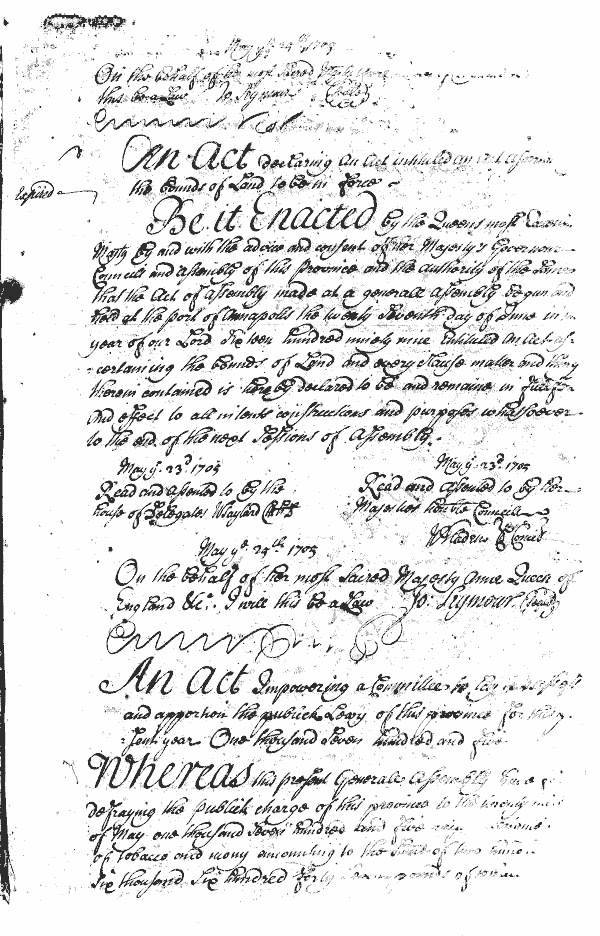 May ye 24th 1705
On the behalf of her most Sacred
this be a Law Jo Seymour
An Act declaring an Act intituled an Act
the bounds of Land to be in force
Expired
Be it Enacted by the Queens most
Majty by and with the advice and consent of her Majesty's Governour
Councill and assembly of this Province and the authority of the same
that the Act of Assembly made at a generall Assembly begun and
held at the port of Annapolis the twenty Seventh day of June in
year of our Lord Sixteen hundred ninety nine Entituled an Act as-
-certaining the bounds of Land and every Clause matter and thing
therein contained is hereby declared to be and remaine in full for
and effect to all intents constructions and purposes whatsoever
to the end of the next Sessions of Assembly.
May ye. 23d. 1705
Read and assented to by the
house of Delegates
May ye. 23d. 1705
Read and assented to by her
Majesties honble Councill
W Bladen
May ye. 24th 1705
On the behalf of her most Sacred Majesty Anne Queen of
England &c. I will this be a Law Jo: Seymour
An Act Impowering a Committee to lay
and apportion the publick Levy of this province for this p
-sent year One thousand Seven hundred and five
Whereas this present Generall Assembly have
defraying the publick charge of this province to the twenty
of May one thousand Seven hundred and five
of tobacco and mony amounting to the
Six thousand Six hundred forty pounds of